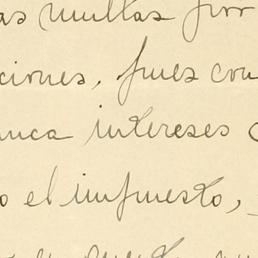 as multas por
ciones, pues con
anca intereses
o el impuesto,